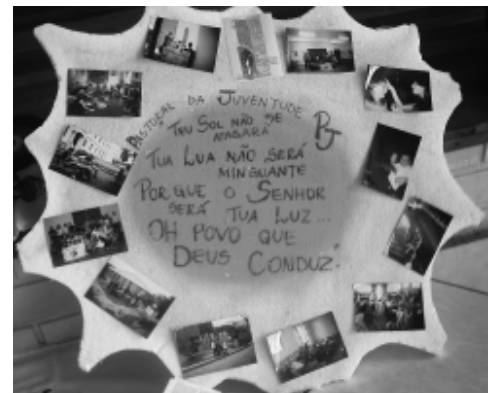 PASTORAL DA JUVENTUDE
PJ
"TEU SOL NÃO SE
APAGARÁ
TUA LUA NÃO SERÁ
MINGUANTE
PORQUE O SENHOR
SERÁ TUA LUZ...
OH POVO QUE
DEUS CONDUZ."